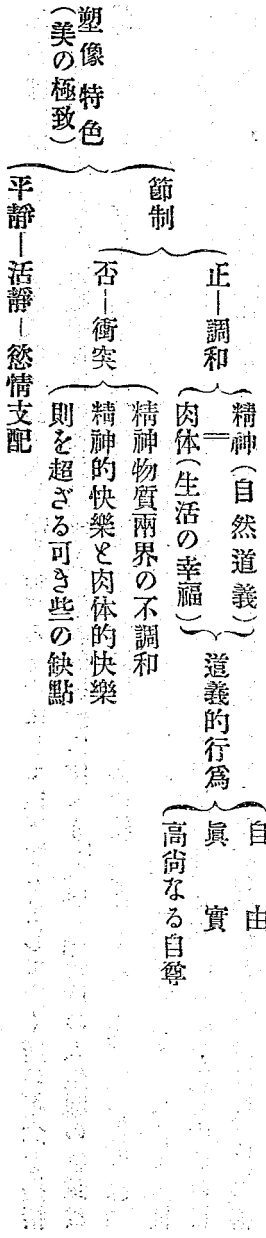 塑像特色
(美の極致)
節制
正―調和
精神(自然道義)
=
肉体(生活の幸福)
道義的行爲
自由
眞實
高尙なる自尊
否―衝突
精神物質兩界の不調和
精神的快樂と肉体的快樂
則を超ざる可き些の缺點
平靜―活靜―慾情支配